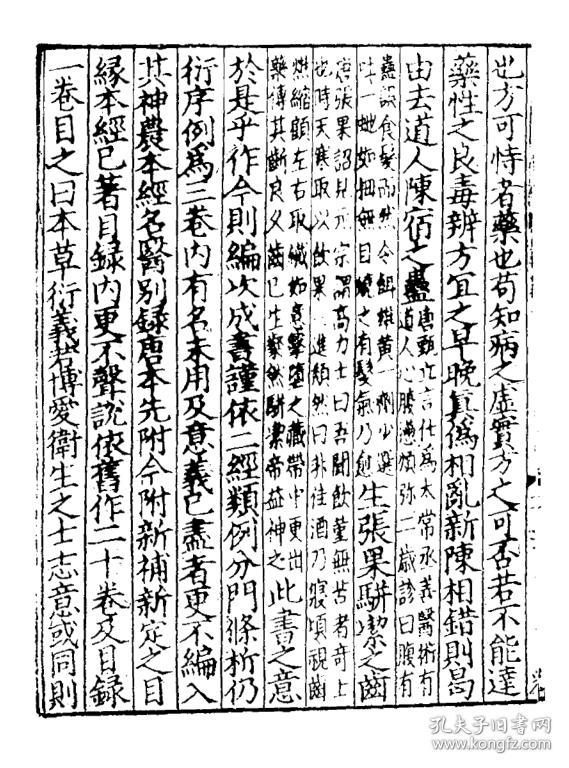 也方可恃者藥也苟知病之虛實方之可否若不能達
藥性之良毒辨方宜之早晚真偽相亂新陳相錯則曷
由去道人陳宿之蠱唐甄立言仕為太常丞善醫術有
道人心腹懣煩弥二歲診曰腹有
蠱誤食髮而然令餌雄黃一劑少選
吐一虵如拇無目燒之有髮氣乃愈生張果駢潔之齒
唐張果詔見元宗謂高力士曰吾聞飲堇無苦者奇士
也時天寒取以飲果三進頹然曰非佳酒乃寢頃視齒
燋縮顧左右取鐵如意擊墮之藏帶中更出
藥傅其斷良久齒已生粲然駢潔帝益神之此書之意
於是乎作今則編次成書謹依二經類例分門條析仍
衍序例為三卷內有名未用及意義已盡者更不編入
其神農本經名醫別錄唐本先附今附新補新定之目
緣本經已著目錄內更不聲說依舊作二十卷及目錄
一卷目之曰本草衍義若博愛衛生之士志意或同則
孔夫子旧书网
www.kongfz.com